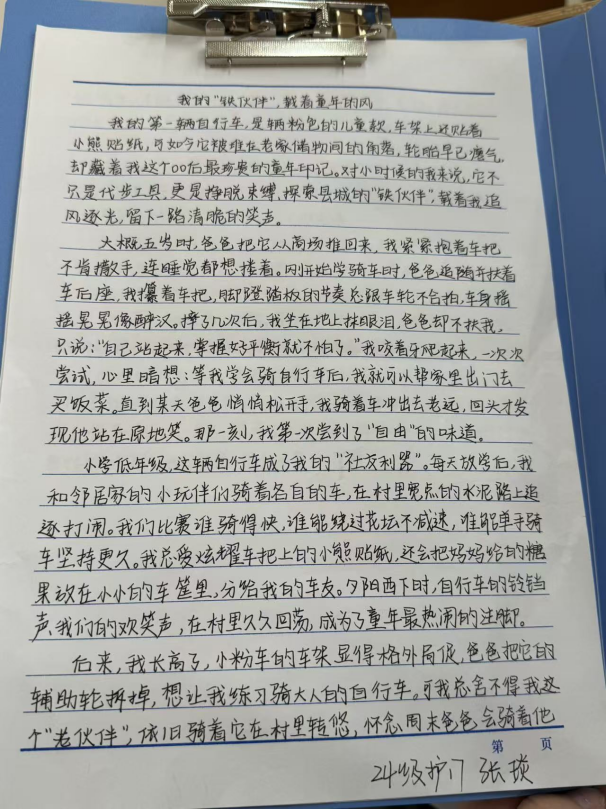 我的“铁伙伴”，载着童年的风
我的第一辆自行车，是辆粉色的儿童款，车架上还贴着
小熊贴纸，可如今它被堆在老家储物间的角落，轮胎早已瘪气，
却藏着我这个00后最珍贵的童年印记。对小时候的我来说，它不
只是代步工具，更是挣脱束缚、探索县城的“铁伙伴”，载着我追
风逐光，留下一路清脆的笑声。
大概五岁时，爸爸把它从商场推回来，我紧紧抱着车把
不肯撒手，连睡觉都想挨着。刚开始学骑车时，爸爸追随并扶着
车后座，我攥着车把，脚蹬踏板的节奏总跟车轮不合拍，车身摇
摇晃晃像醉汉。摔了几次后，我坐在地上抹眼泪，爸爸却不扶我，
只说：“自己站起来，掌握好平衡就不怕了。”我咬着牙爬起来，一次次
尝试，心里暗想：等我学会骑自行车后，我就可以帮家里出门去
买饭菜。直到某天爸爸悄悄松开手，我骑着车冲出去老远，回头才发
现他站在原地笑。那一刻，我第一次尝到了“自由”的味道。
小学低年级，这辆自行车成了我的“社交利器”。每天放学后，我
和邻居家的小玩伴们骑着各自的车，在村里宽点的水泥路上追
逐打闹。我们比赛谁骑得快，谁能绕过花坛不减速，谁能单手骑
车坚持更久。我总爱炫耀车把上的小熊贴纸，还会把妈妈给的糖
果放在小小的车筐里，分给我的车友。夕阳西下时，自行车的铃铛
声、我们的欢笑声，在村里久久回荡，成为了童年最热闹的注脚。
后来，我长高了，小粉车的车架显得格外局促，爸爸把它的
辅助轮拆掉，想让我练习骑大人的自行车。可我总舍不得我这
个“老伙伴”，依旧骑着它在村里转悠，怀念周末爸爸会骑着他
第 页
24级护7 张琰